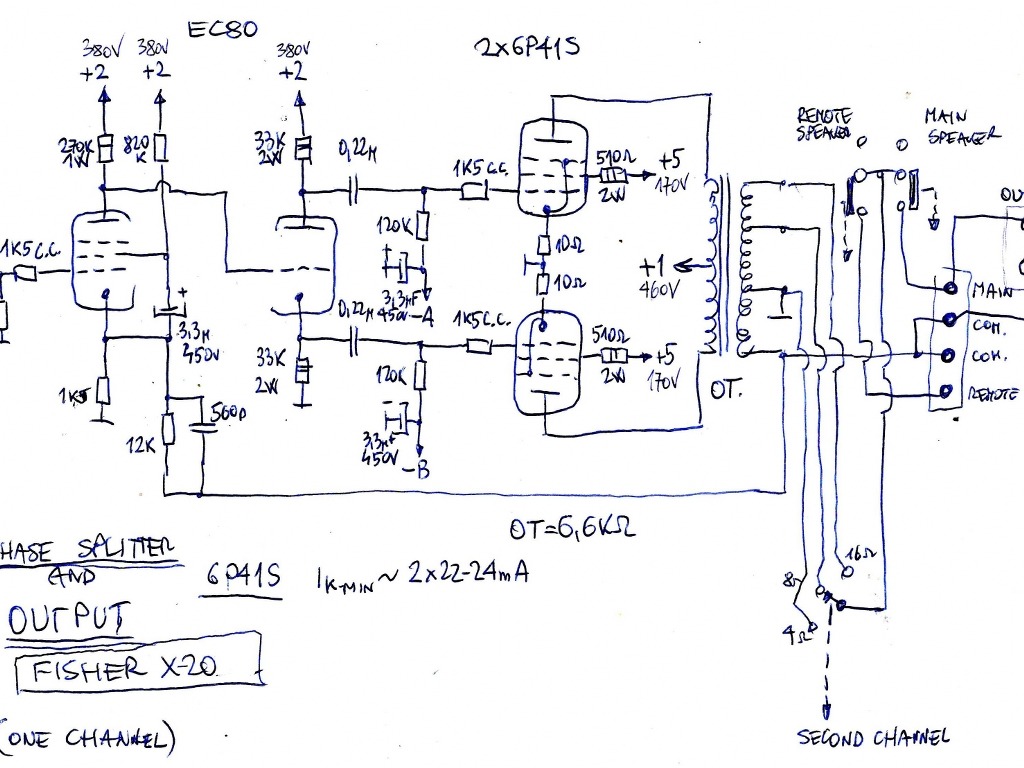 EC80
2x6P41S
380V
+2
380V
+2
380V
+2
270K
1W
820
K
33K
2W
0,22M
1K5 C.C.
510Ω
2W
+5
170V
REMOTE
SPEAKER
MAIN
SPEAKER
OU
1K5 C.C.
120K
10Ω
10Ω
+1
460V
3,3MF
450V
-A
+
3,3M
450V
0,22M
1K5 C.C.
510Ω
2W
+5
170V
OT.
MAIN
COM.
COM.
REMOTE
1K5
33K
2W
120K
560P
12K
3,3MF
450V
-B
OT=6,6KΩ
HASE SPLITTER
AND
OUTPUT
6P41S
IK-MIN ~ 2x22-24mA
FISHER X-20
(ONE CHANNEL)
16Ω
8Ω
4Ω
SECOND CHANNEL